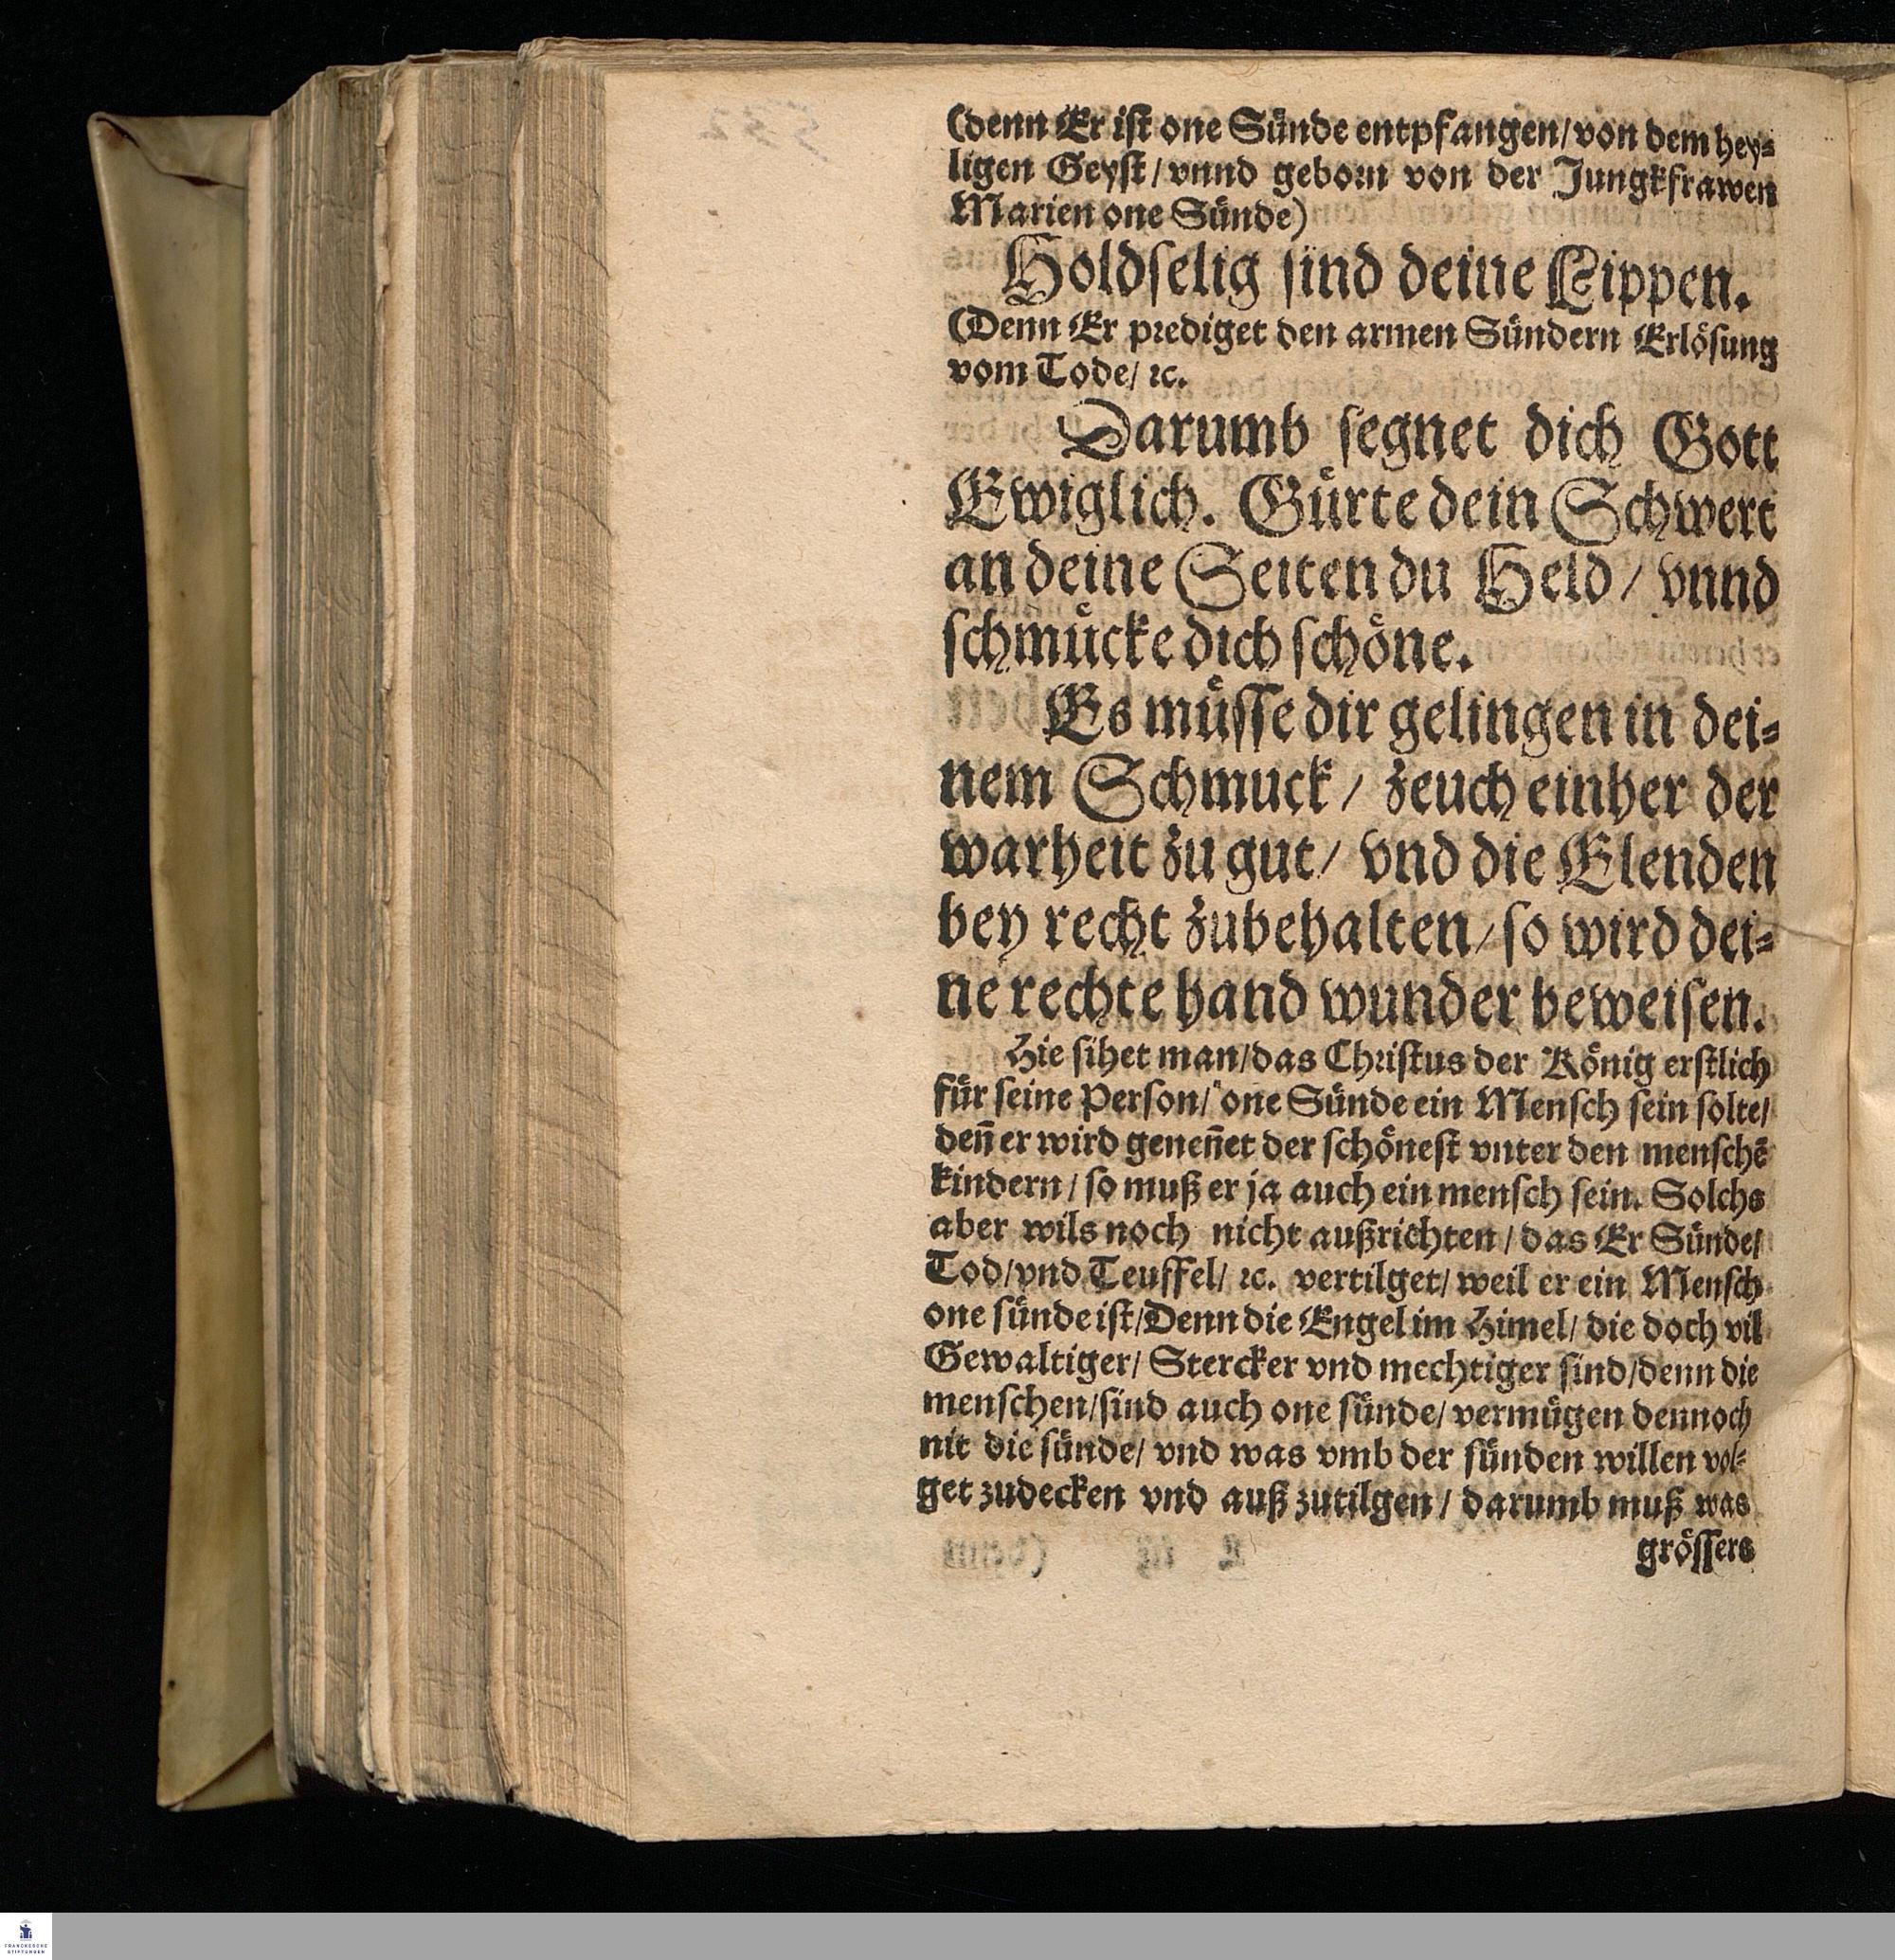 (denn Er ist one Sünde entpfangen/ von dem hey⸗
ligen Geyst/ vnnd geborn von der Jungkfrawen
Marien one Sünde)
Holdselig sind deine Lippen.
(Denn Er prediget den armen Sündern Erlösung
vom Tode/ ꝛc.
Darumb segnet dich Gott
Ewiglich. Gürte dein Schwert
an deine Seiten du Held/ vnnd
schmücke dich schöne.
Es müsse dir gelingen in dei⸗
nem Schmuck/ zeuch einher der
warheit zu gut/ vnd die Elenden
bey recht zubehalten/ so wird dei⸗
ne rechte hand wunder beweisen.
Hie sihet man/ das Christus der König erstlich
für seine Person/ one Sünde ein Mensch sein solte/
deñ er wird geneñet der schönest vnter den menschē
kindern/ so muß er ja auch ein mensch sein. Solchs
aber wils noch nicht außrichten/ das Er Sünde/
Tod/ vnd Teuffel/ ꝛc. vertilget/ weil er ein Mensch
one sünde ist/ Denn die Engel im Himel/ die doch vil
Gewaltiger/ Stercker vnd mechtiger sind/ denn die
menschen/ sind auch one sünde/ vermügen dennoch
nit die sünde/ vnd was vmb der sünden willen vol⸗
get zudecken vnd auß zutilgen/ darumb muß was
grössers
FRANCKESCHE
STIFTUNGEN